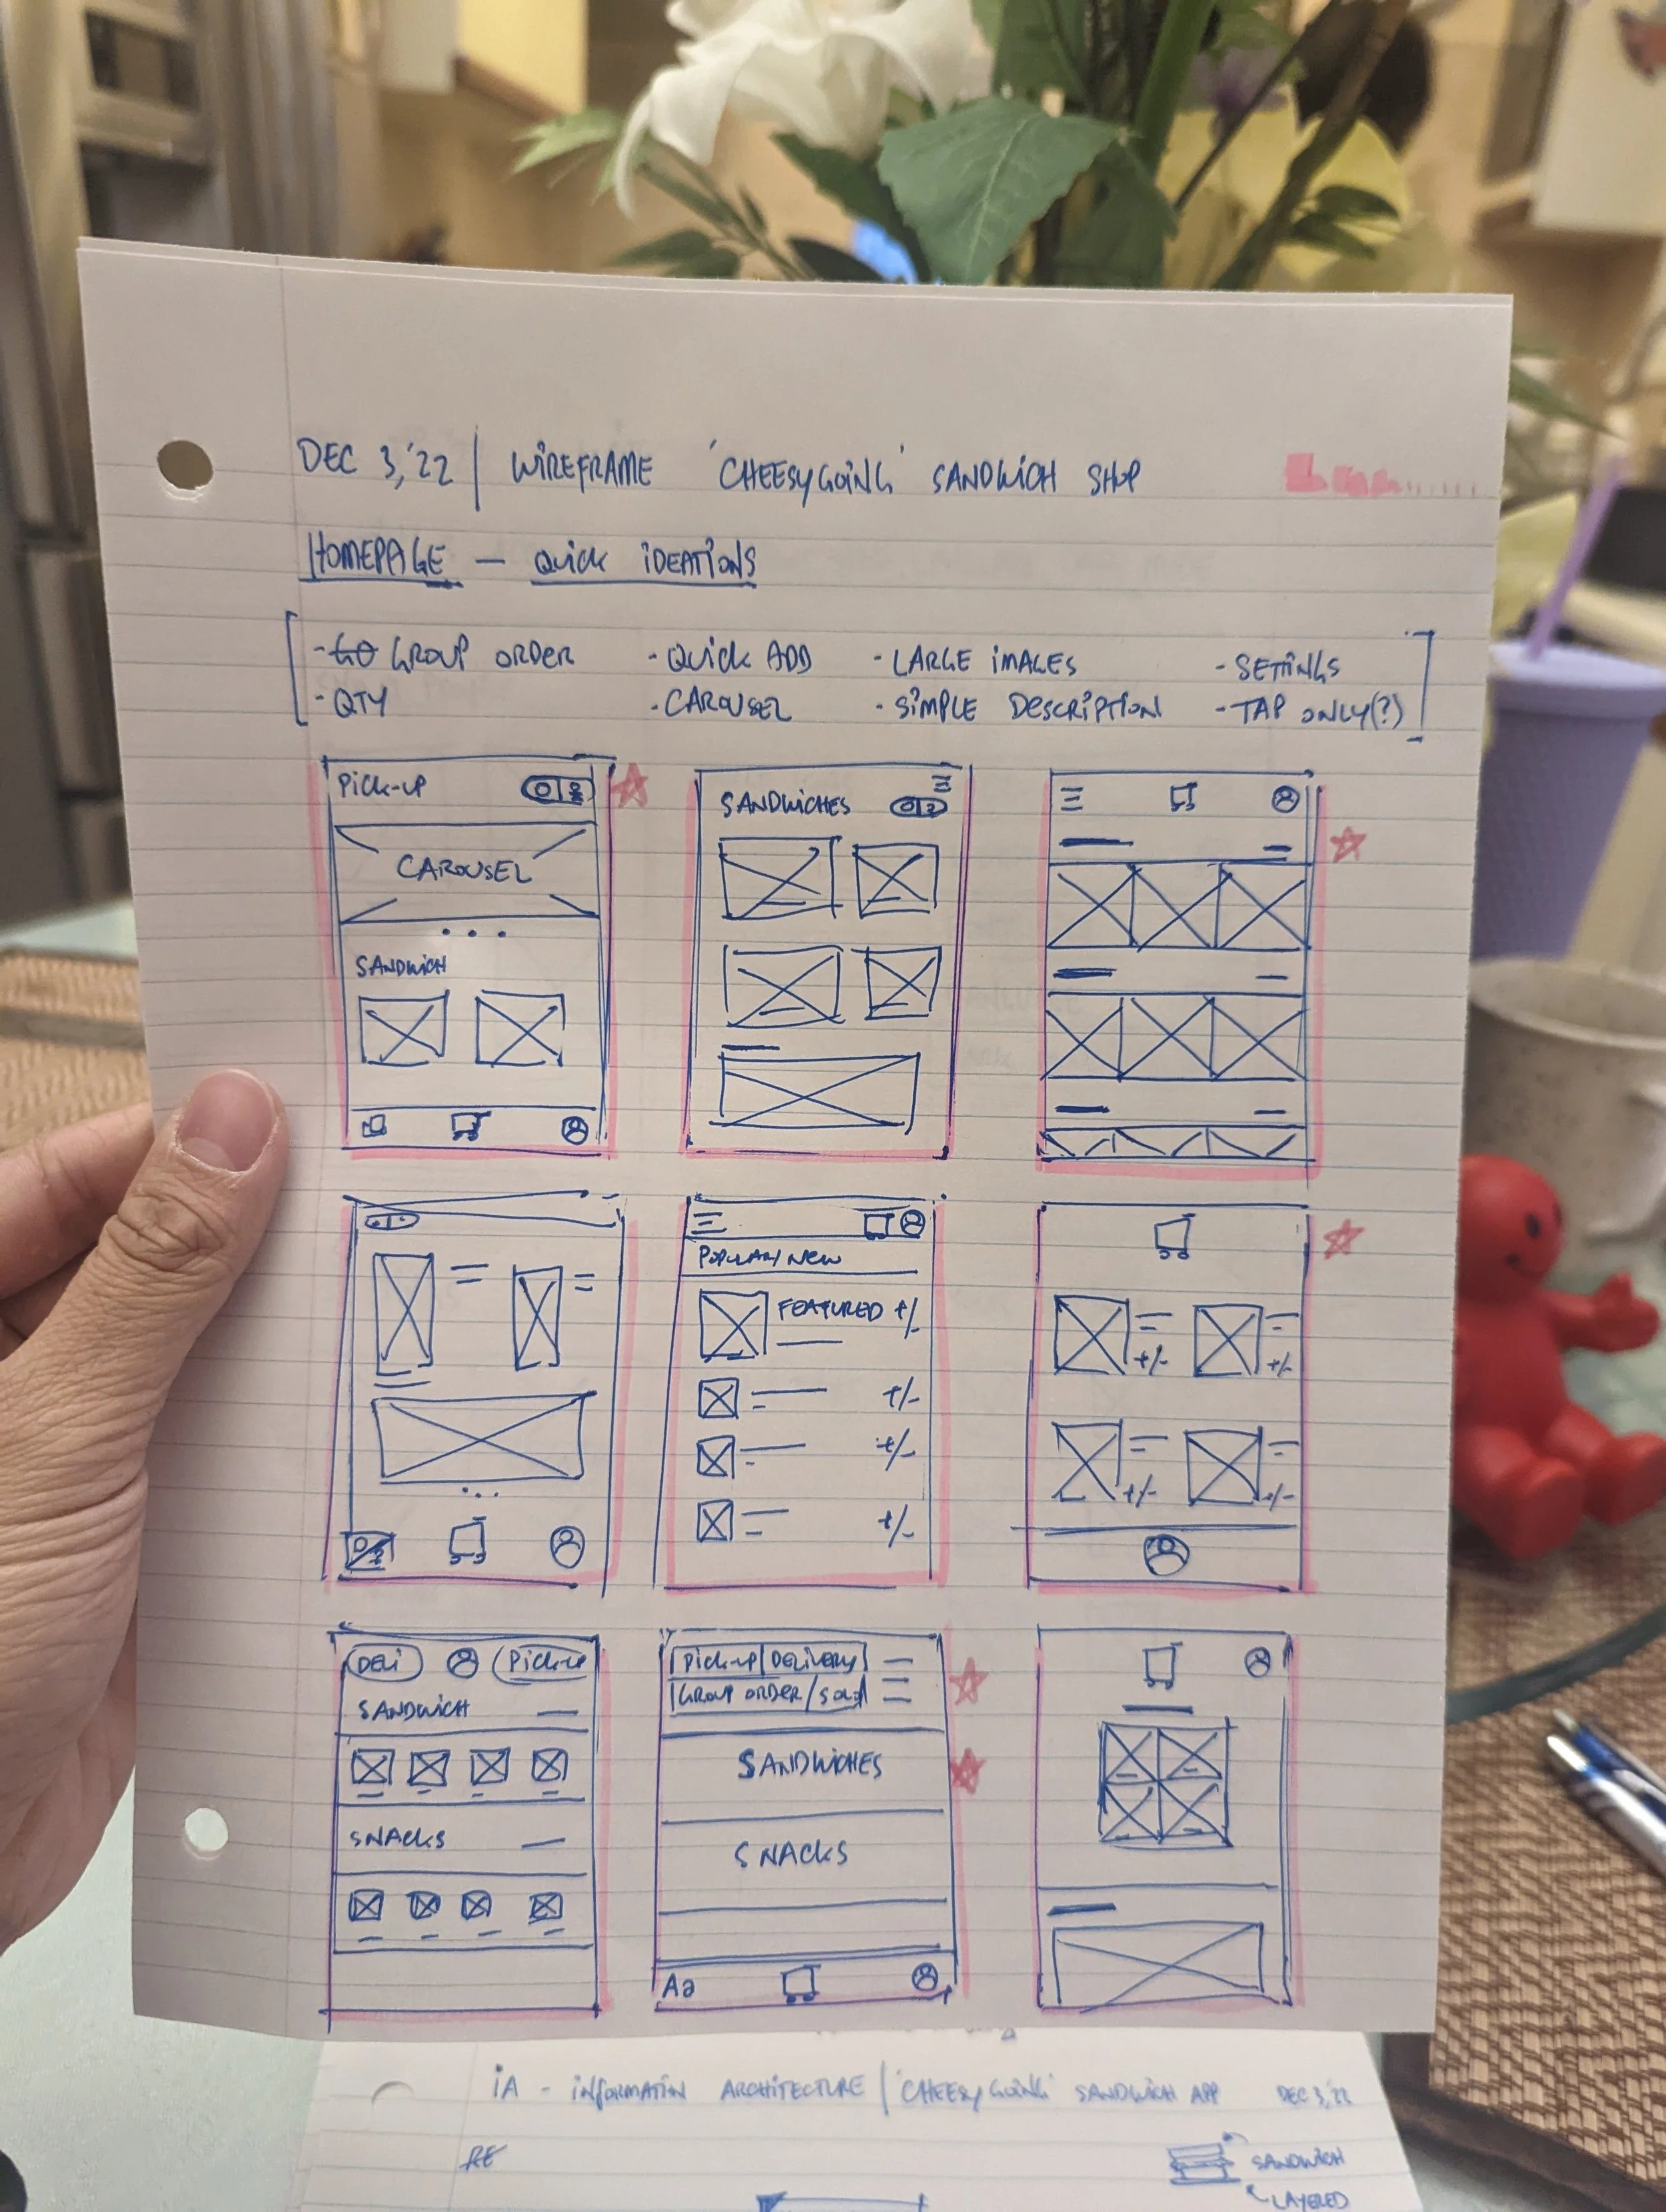 DEC 3, '22 | WIREFRAME 'CHEESYGOING' SANDWICH SHOP
HOMEPAGE — QUICK IDEATIONS
- GO GROUP ORDER - QUICK ADD - LARGE IMAGES - SETTINGS
- QTY - CAROUSEL - SIMPLE DESCRIPTION - TAP ONLY(?)
PICK-UP
CAROUSEL
SANDWICH
SANDWICHES
POPULAR/NEW
FEATURED +/-
+/-
+/-
+/-
+/- +/-
+/- +/-
DELI PICK-UP
SANDWICH
SNACKS
PICK-UP|DELIVERY
GROUP ORDER/SOLO
SANDWICHES
SNACKS
Aa
IA - INFORMATION ARCHITECTURE / 'CHEESYGOING' SANDWICH APP DEC 3, '22
RE
SANDWICH
LAYERED